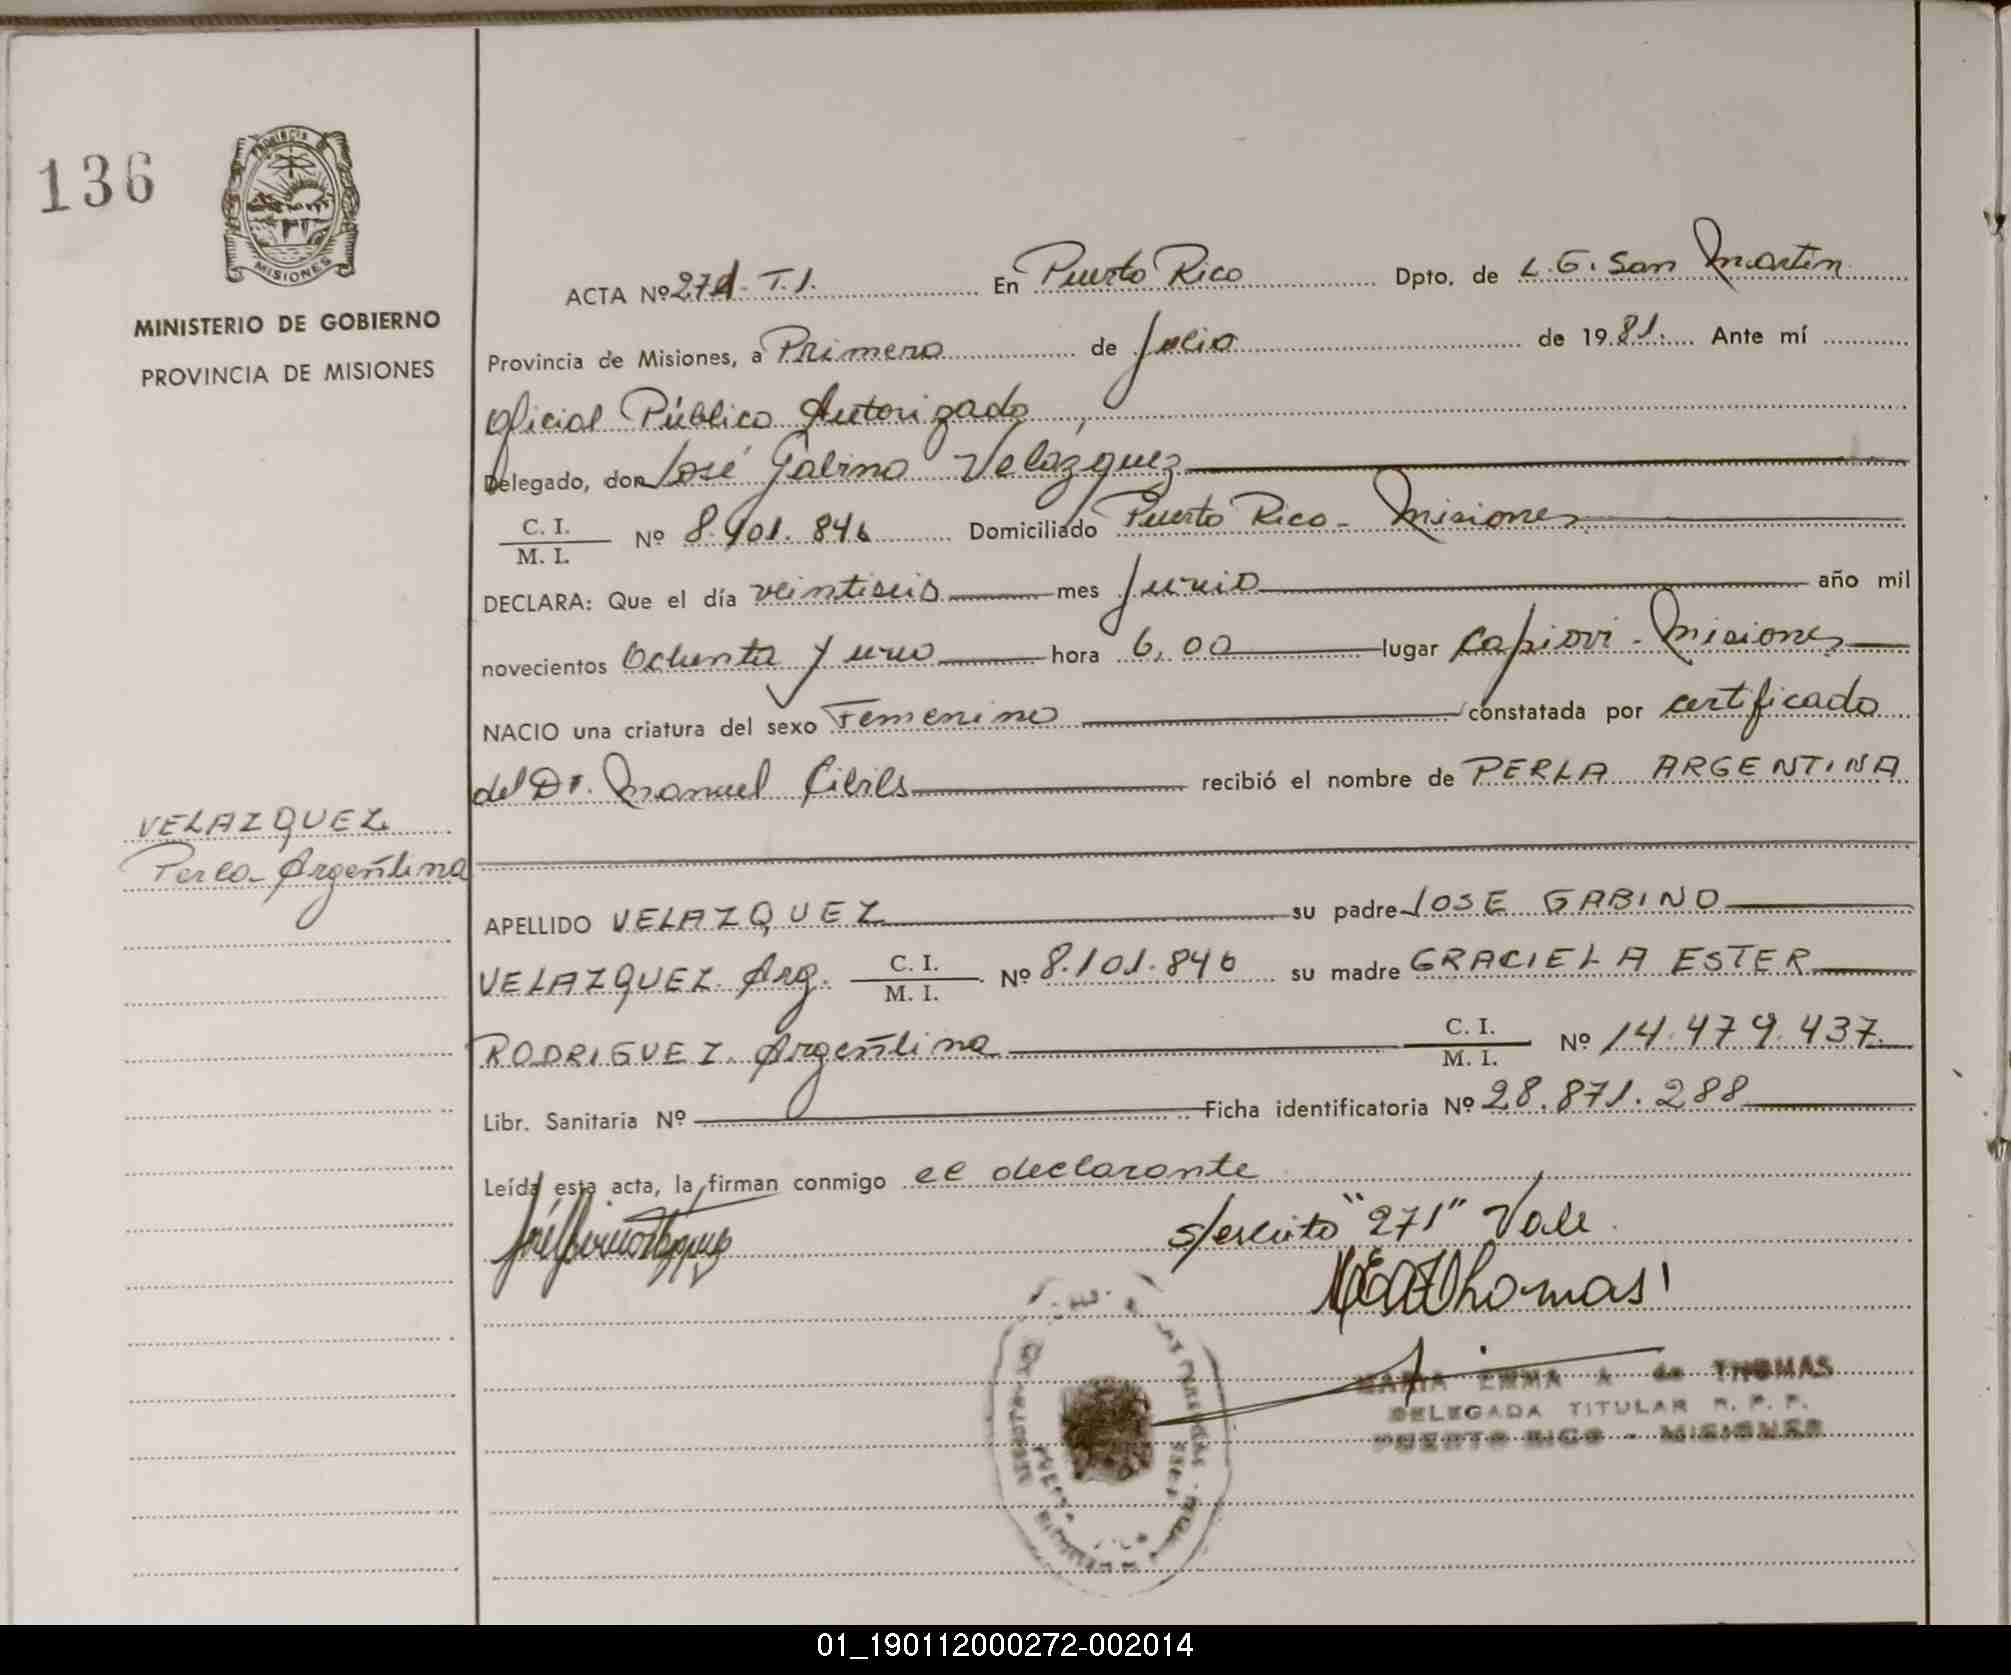 136
PROVINCIA DE
MISIONES
MINISTERIO DE GOBIERNO
PROVINCIA DE MISIONES
ACTA Nº 271 - T.1. En Puerto Rico Dpto. de L.G. San Martin
Provincia de Misiones, a Primero de Julio de 1981. Ante mí
Oficial Público Autorizado,
Delegado, don José Gabino Velázquez
C. I. / M. I. Nº 8.101.846 Domiciliado Puerto Rico - Misiones
DECLARA: Que el día veintiseis mes Junio año mil
novecientos Ochenta y uno hora 6,00 lugar Capiovi - Misiones
NACIO una criatura del sexo Femenino constatada por certificado
del Dr. Manuel Cibils recibió el nombre de PERLA ARGENTINA
VELAZQUEZ
Perla Argentina
APELLIDO VELAZQUEZ su padre JOSE GABINO
VELAZQUEZ. Arg. C. I. / M. I. Nº 8.101.846 su madre GRACIELA ESTER
RODRIGUEZ. Argentina C. I. / M. I. Nº 14.479.437.
Libr. Sanitaria Nº Ficha identificatoria Nº 28.871.288
Leída esta acta, la firman conmigo el declarante
s/escrito "271" Vale
Thomas
MARIA EMMA A de THOMAS
DELEGADA TITULAR R. P. P.
PUERTO RICO - MISIONES
01_190112000272-002014